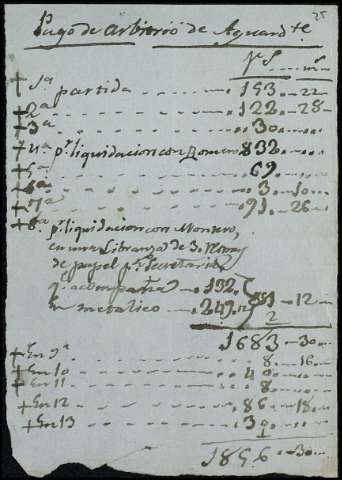 25
Pago de arbitrio de Aguardte
rs ms
+ 1a partida . 193 . 22
+ 2a . 122 . 28
+ 3a . 30 .
+ 4a pr liquidacion con Romero 832 .
+ 5a . 69 .
+ 6a . 3 . 10
+ 7a . 91 . 26
+ 8a pr liquidacion con Montero,
en una Libranza de 3
de papel pr Secretaria
q. acompaña . 132
En metalico . 249.12 381 . 12
2
1683 . 30
+ En 9a . 8 . 16
+ En 10
+ En 11 . 8 .
+ En 12 . 86 . 18
+ En 13
1856 . 30